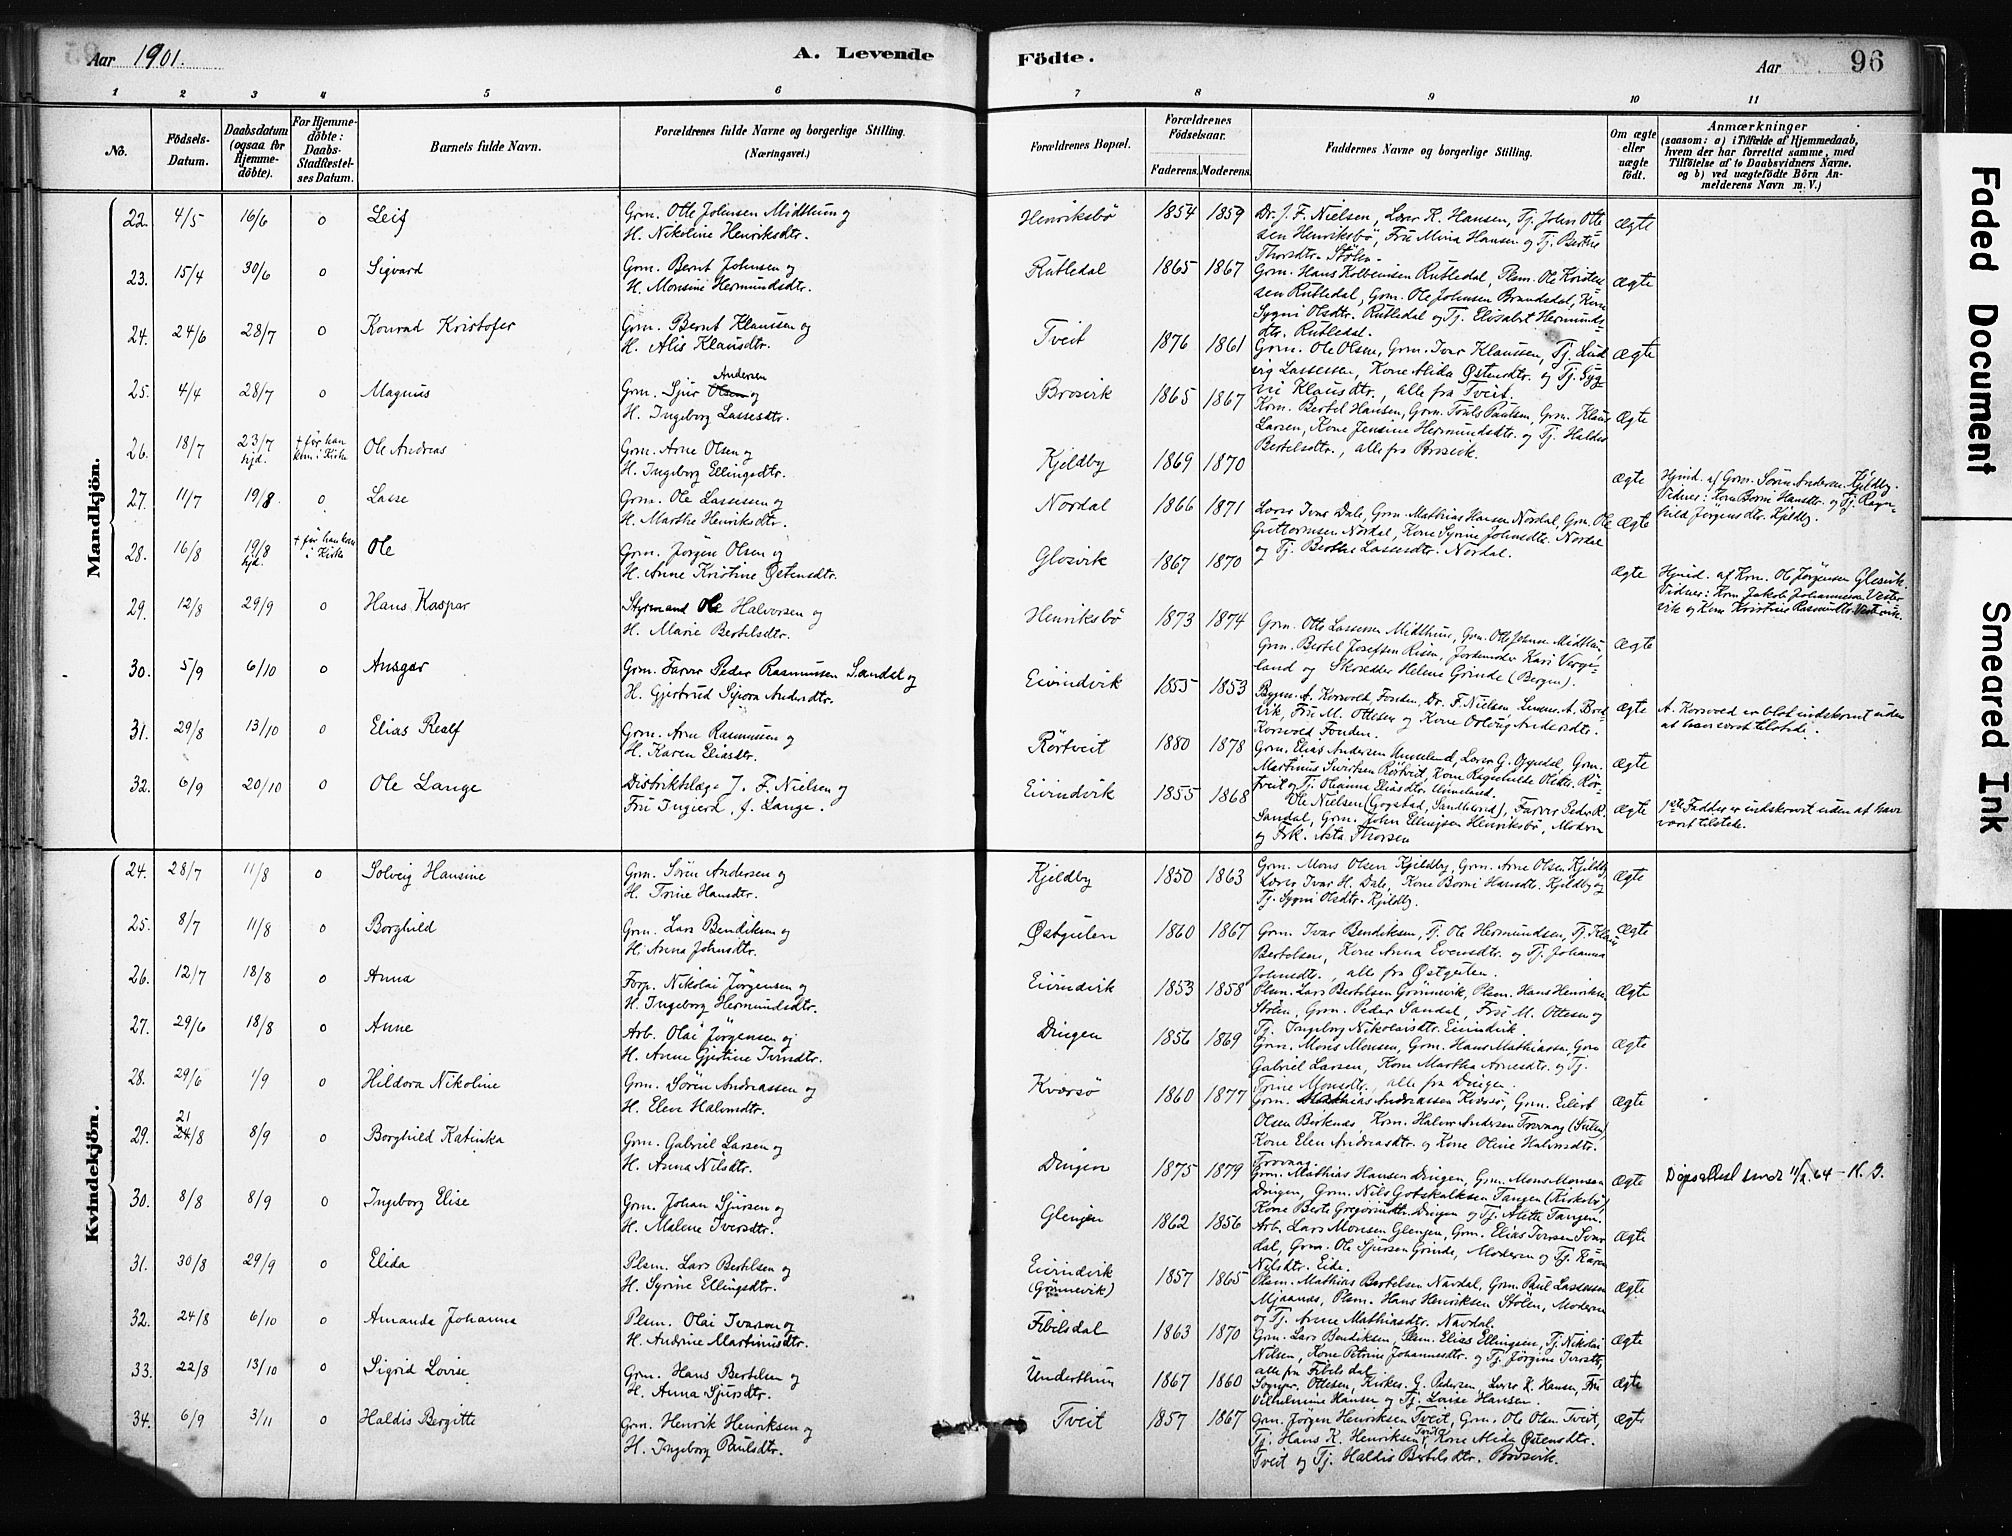 Aar 1901.
A. Levende
Födte.
Aar
96
1 2 3 4 5 6 7 8 9 10 11
No.
Födsels-Datum.
Daabsdatum (ogsaa for Hjemme-döbte).
For Hjemme-döbte: Daabs-Stadfæstel-ses Datum.
Barnets fulde Navn.
Forældrenes fulde Navne og borgerlige Stilling. (Næringsvei.)
Forældrenes Bopæl.
Forældrenes Födselsaar.
Faderens. Moderens.
Faddernes Navne og borgerlige Stilling.
Om ægte eller uægte født.
Anmærkninger
(saasom: a) i Tilfælde af Hjemmedaab, hvem der har forrettet samme, med Tilföielse af to Daabsvidners Navne. og b) ved uægtefödte Börn Anmelderens Navn m. V.)
Mandkjön.
22. 4/5 16/6 0 Leif Grm. Otte Johnsen Midthun og H. Nikoline Henriksdtr. Henriksbö 1854 1859 Dr. J. F. Nielsen, Lærer K. Hansen, Tj. John Ottesen Henriksbö, Fru Mina Hansen og Tj. Bertus Thorsdtr. Stölen. Ægte
23. 15/4 30/6 0 Sigvard Grm. Bernt Johnsen og H. Monsine Hermundsdtr. Rutledal 1865 1867 Grm. Hans Kolbeinsen Rutledal, Plsm. Ole Kristensen Rutledal, Grm. Ole Johnsen Brandsdal, Kone Sygni Olsdtr. Rutledal og Tj. Elisabet Hermundsdtr. Rutledal. Ægte
24. 24/6 28/7 0 Konrad Kristofer Grm. Bernt Klaussen og H. Alis Klausdtr. Tveit 1876 1861 Grm. Ole Olsen, Grm. Ivar Klaussen, Tj. Ludvig Lassesen, Kone Alida Østensdtr. og Tj. Sygni Klausdtr., alle fra Tveit. Ægte
25. 4/4 28/7 0 Magnus Grm. Sjur Olsen Andersen og H. Ingeborg Lassesdtr. Brosvik 1865 1867 Krm. Bertel Hansen, Grm. Pouls Paulsen, Grm. Klaus Larsen, Kone Jensine Hermundsdtr. og Tj. Haldis Bertelsdtr., alle fra Brosvik. Ægte
26. 18/7 23/7 hjd. † før han kom i Kirke Ole Andreas Grm. Arne Olsen og H. Ingeborg Ellingsdtr. Kjeldby 1869 1870 Ægte Hjmd. af Grm. Sören Andersen Kjeldby. Vidner: Kone Borni Hansdtr. og Tj. Ragnhild Jörgensdtr. Kjeldby.
27. 11/7 19/8 0 Lasse Grm. Ole Lassesen og H. Marthe Henriksdtr. Nordal 1866 1871 Lærer Ivar Dale, Grm. Mathias Hansen Nordal, Grm. Ole Guttormsen Nordal, Kone Syrine Johnsdtr. Nordal og Tj. Berthe Lassesdtr. Nordal. Ægte
28. 16/8 19/8 hjd. † før han kom i Kirke Ole Grm. Jörgen Olsen og H. Anne Kristine Østensdtr. Glosvik 1867 1870 Ægte Hjmd. af Krm. Ole Jörgensen Glosvik. Vidner: Krm. Jakob Johannessen Vestervik og Kone Kristine Rasmusdtr. Vestervik.
29. 12/8 29/9 0 Hans Kaspar Styrmand Ole Halvorsen og H. Marie Bertelsdtr. Henriksbö 1873 1874 Grm. Otto Lassesen Midthun, Grm. Otte Johnsen Midthun, Grm. Bertel Josefsen Risen, Jordemoder Kari Vergeland og Skrædder Helene Grinde (Bergen). Ægte
30. 5/9 6/10 0 Ansgar Grm. Farver Peder Rasmussen Sandal og H. Gjertrud Sjova Andersdtr. Eivindvik 1855 1853 Bygm. A. Korsvold, Fonden, Dr. F. Nielsen, Lensm. A. Brosvik, Fru M. Ottesen og Kone Oolvug Andersdtr. Korsvold Fonden. Ægte A. Korsvold er blot indskrevet uden at have været tilstede.
31. 29/8 13/10 0 Elias Realf Grm. Arne Rasmussen og H. Karen Eliasdtr. Rörtveit 1880 1878 Grm. Elias Andersen Unneland, Lærer G. Oppedal, Grm. Martinus Sivertsen Rörtveit, Kone Ragnhilde Olsdtr. Rörtveit og Tj. Oleanna Eliasdtr. Unneland. Ægte
32. 6/9 20/10 0 Ole Lange Distriktslæge J. F. Nielsen og Fru Ingierd, f. Lange. Eivindvik 1855 1868 Ole Nielsen (Gogstad, Sandherred), Farver Peder R. Sandal, Grm. John Ellingsen Henriksbö, Moderen og Frk. Asta Thorsen Ægte 1ste Fadder er indskrevet uden at have været tilstede.
Kvindekjön.
24. 28/7 11/8 0 Solveig Hansine Grm. Sören Andersen og H. Trine Hansdtr. Kjeldby 1850 1863 Grm. Mons Olsen Kjeldby, Grm. Arne Olsen Kjeldby, Lærer Ivar H. Dale, Kone Borni Hansdtr. Kjeldby og Tj. Sygni Olsdtr. Kjeldby. Ægte
25. 8/7 11/8 0 Borghild Grm. Lars Bendiksen og H. Anna Johnsdtr. Østgulen 1860 1867 Grm. Ivar Bendiksen, Tj. Ole Hermundsen, Tj. Klaus Bertelsen, Kone Anna Evensdtr. og Tj. Johanna Johnsdtr., alle fra Østgulen. Ægte
26. 12/7 18/8 0 Anna Forp. Nikolai Jørgensen og H. Ingeborg Hermundsdtr. Eivindvik 1853 1858 Plsm. Lars Bertelsen Grönnevik, Plsm. Hans Henriksen Stölen, Grm. Peder Sandal, Fru M. Ottesen og Tj. Ingeborg Nikolaisdtr. Eivindvik. Ægte
27. 29/6 18/8 0 Anne Arb. Olai Jørgensen og H. Anne Gjertine Iversdtr. Dingen 1856 1869 Grm. Mons Monsen, Grm. Hans Mathiassen, Grm. Gabriel Larsen, Kone Martha Arnesdtr. og Tj. Trine Monsdtr., alle fra Dingen. Ægte
28. 29/6 1/9 0 Hildora Nikoline Grm. Sören Andreassen og H. Elen Halvorsdtr. Kversö 1860 1877 Grm. Mathias Andreassen Kversö, Grm. Eilert Olsen Birknes, Krm. Halvor Andersen Trovaag (Sulen), Kone Elen Andreasdtr. og Kone Oline Halvorsdtr. Trovaag. Ægte
29. 21 24/8 8/9 0 Borghild Katinka Grm. Gabriel Larsen og H. Anna Nilsdtr. Dingen 1875 1879 Grm. Mathias Hansen Dingen, Grm. Mons Monsen Dingen, Grm. Nils Gotskalksen Tangen (Kirkebö), Kone Berte Gregoriusdtr. Dingen og Tj. Alette Tangen. Ægte Dåpsattest sendt 11/2 64 – K. B.
30. 8/8 8/9 0 Ingeborg Elise Grm. Johan Sjursen og H. Malene Iversdtr. Glenjen 1862 1856 Arb. Lars Monsen Glenjen, Grm. Elias Iversen Svardal, Grm. Ole Sjursen Grinde, Moderen og Tj. Karen Nilsdtr. Eide. Ægte
31. 30/8 29/9 0 Elida Plsm. Lars Bertelsen og H. Syrine Ellingsdtr. Eivindvik (Grönnevik) 1857 1865 Plsm. Mathias Bertelsen Navdal, Grm. Paul Lassesen Mjaanes, Plsm. Hans Henriksen Stölen, Moderen og Tj. Anne Mathiasdtr. Navdal. Ægte
32. 24/8 6/10 0 Amanda Johanna Plsm. Olai Ivarson og H. Andrine Martinusdtr. Fibelsdal 1863 1870 Grm. Lars Bendiksen, Plsm. Elias Ellingsen, Tj. Nikolai Nilsen, Kone Petrine Johannesdtr. og Tj. Jörgine Iversdtr., alle fra Fibelsdal. Ægte
33. 22/8 13/10 0 Sigrid Lovise Grm. Hans Bertelsen og H. Anna Sjursdtr. Underthun 1867 1860 Sognepr. Ottesen, Kirkes. G. Pedersen, Lærer K. Hansen, Fru Vilhelmine Hansen og Tj. Lovise Hansen. Ægte
34. 6/9 3/11 0 Haldis Bergitte Grm. Henrik Henriksen og H. Ingeborg Paulsdtr. Tveit 1857 1867 Grm. Jörgen Henriksen Tveit, Grm. Ole Olsen Tveit, Tj. Hans K. Henriksen Tveit, Kone Alida Østensdtr. Tveit og Tj. Haldis Bertelsdtr. Brosvik. Ægte
Faded Document
Smeared Ink